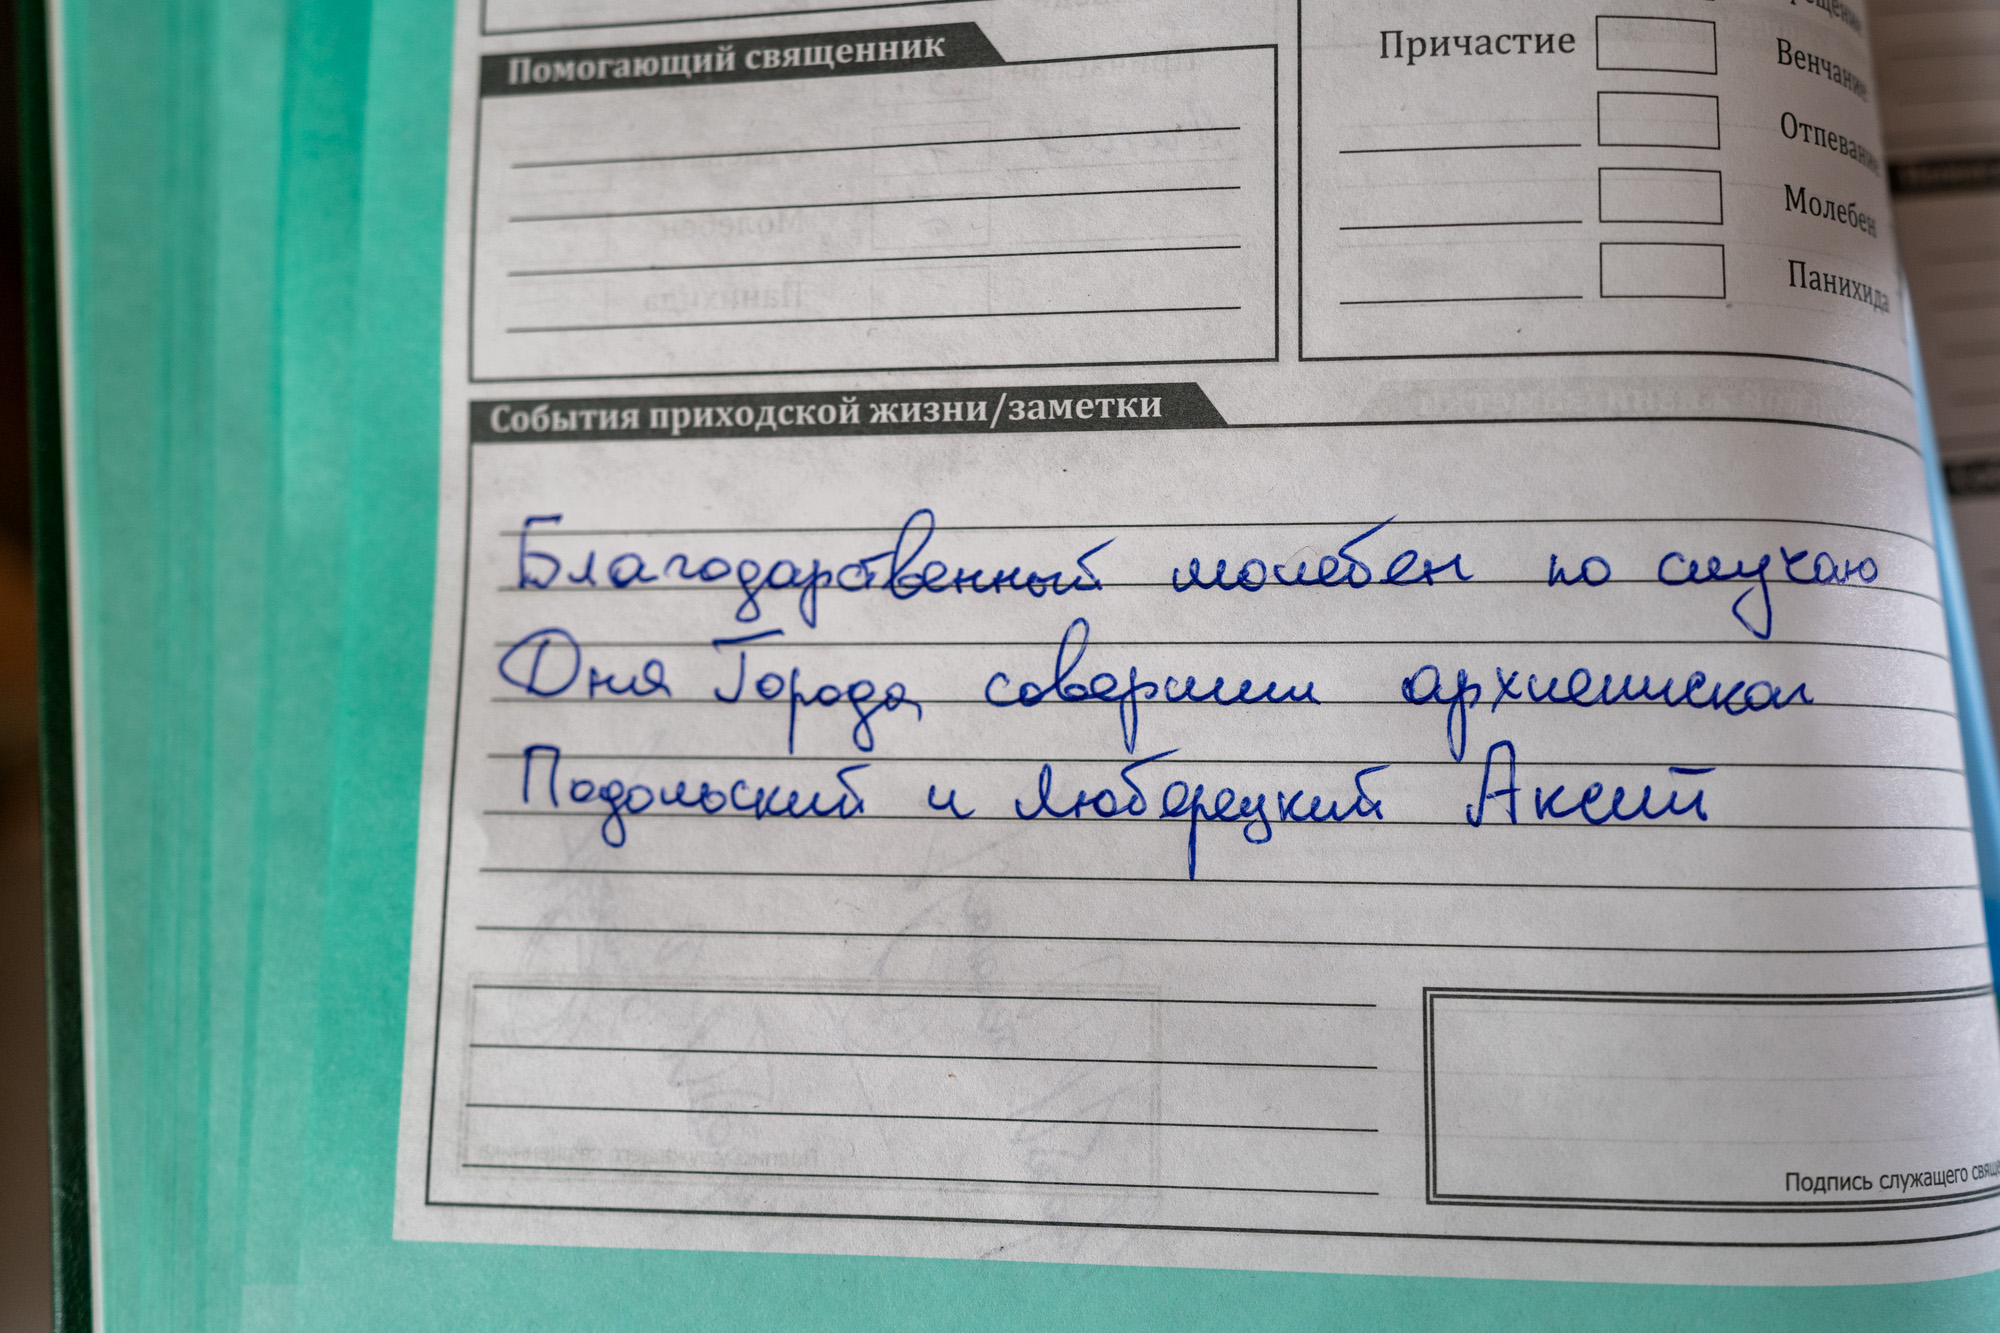 Помогающий священник
Причастие
Венчание
Отпевание
Молебен
Панихида
События приходской жизни/заметки
Благодарственный молебен по случаю
Дня Города совершил архиепископ
Подольский и Люберецкий Аксий
Подпись служащего